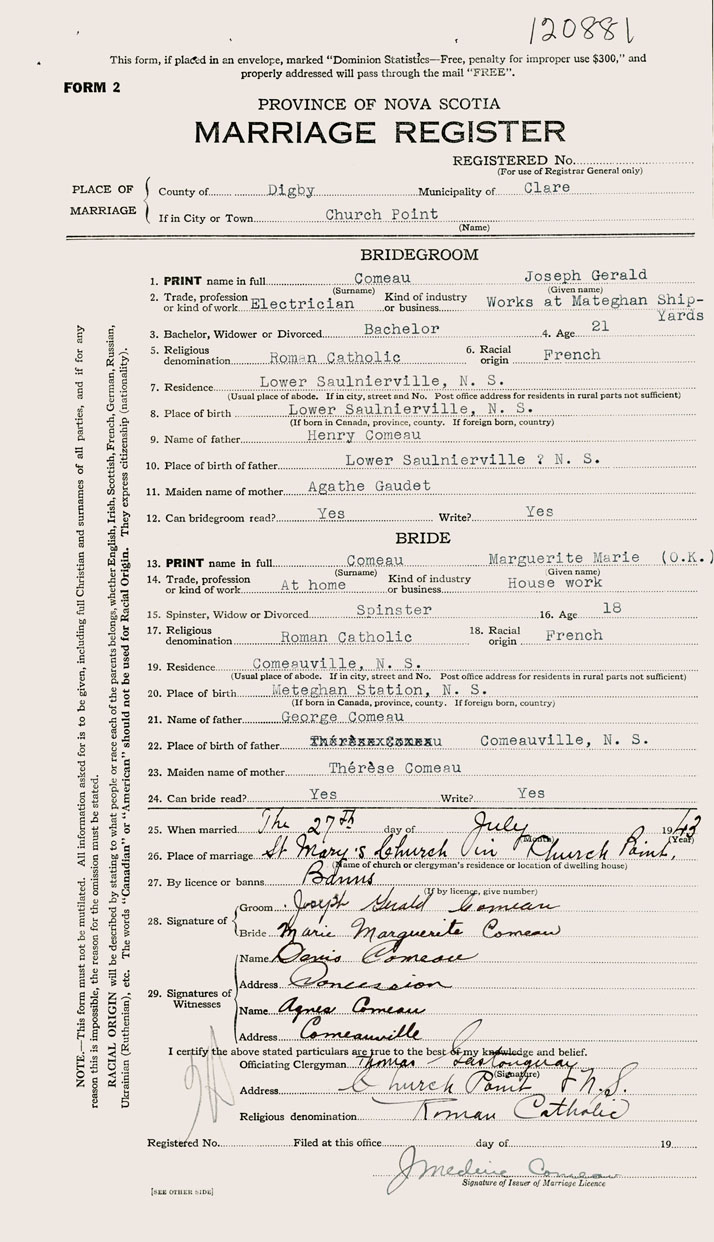 120881
This form, if placed in an envelope, marked "Dominion Statistics—Free, penalty for improper use $300," and
properly addressed will pass through the mail "FREE".
FORM 2
PROVINCE OF NOVA SCOTIA
MARRIAGE REGISTER
REGISTERED No.
(For use of Registrar General only)
PLACE OF MARRIAGE
County of Digby Municipality of Clare
If in City or Town Church Point
(Name)
BRIDEGROOM
1. PRINT name in full Comeau Joseph Gerald
(Surname) (Given name)
2. Trade, profession or kind of work Electrician Kind of industry or business Works at Mateghan Ship-
Yards
3. Bachelor, Widower or Divorced Bachelor 4. Age 21
5. Religious denomination Roman Catholic 6. Racial origin French
7. Residence Lower Saulnierville, N. S.
(Usual place of abode. If in city, street and No. Post office address for residents in rural parts not sufficient)
8. Place of birth Lower Saulnierville, N. S.
(If born in Canada, province, county. If foreign born, country)
9. Name of father Henry Comeau
10. Place of birth of father Lower Saulnierville ? N. S.
11. Maiden name of mother Agathe Gaudet
12. Can bridegroom read? Yes Write? Yes
BRIDE
13. PRINT name in full Comeau Marguerite Marie (O.K.)
(Surname) (Given name)
14. Trade, profession or kind of work At home Kind of industry or business House work
15. Spinster, Widow or Divorced Spinster 16. Age 18
17. Religious denomination Roman Catholic 18. Racial origin French
19. Residence Comeauville, N. S.
(Usual place of abode. If in city, street and No. Post office address for residents in rural parts not sufficient)
20. Place of birth Meteghan Station, N. S.
(If born in Canada, province, county. If foreign born, country)
21. Name of father George Comeau
22. Place of birth of father Comeauville, N. S.
23. Maiden name of mother Thérèse Comeau
24. Can bride read? Yes Write? Yes
25. When married The 27th day of July 1943
(Month) (Year)
26. Place of marriage St Mary's Church in Church Point,
(Name of church or clergyman's residence or location of dwelling house)
27. By licence or banns Banns
(If by licence, give number)
28. Signature of
Groom Joseph Gerald Comeau
Bride Marie Marguerite Comeau
29. Signatures of Witnesses
Name Comeau
Address Concession
Name Agnes Comeau
Address Comeauville
I certify the above stated particulars are true to the best of my knowledge and belief.
Officiating Clergyman Thomas Gastonguay
(Signature)
Address Church Point N.S.
Religious denomination Roman Catholic
Registered No. Filed at this office day of 19
Comeau
Signature of Issuer of Marriage Licence
[SEE OTHER SIDE]
NOTE.—This form must not be mutilated. All information asked for is to be given, including full Christian and surnames of all parties, and if for any
reason this is impossible, the reason for the omission must be stated.
RACIAL ORIGIN will be described by stating to what people or race each of the parents belongs, whether English, Irish, Scottish, French, German, Russian,
Ukrainian (Ruthenian), etc. The words "Canadian" or "American" should not be used for Racial Origin. They express citizenship (nationality).